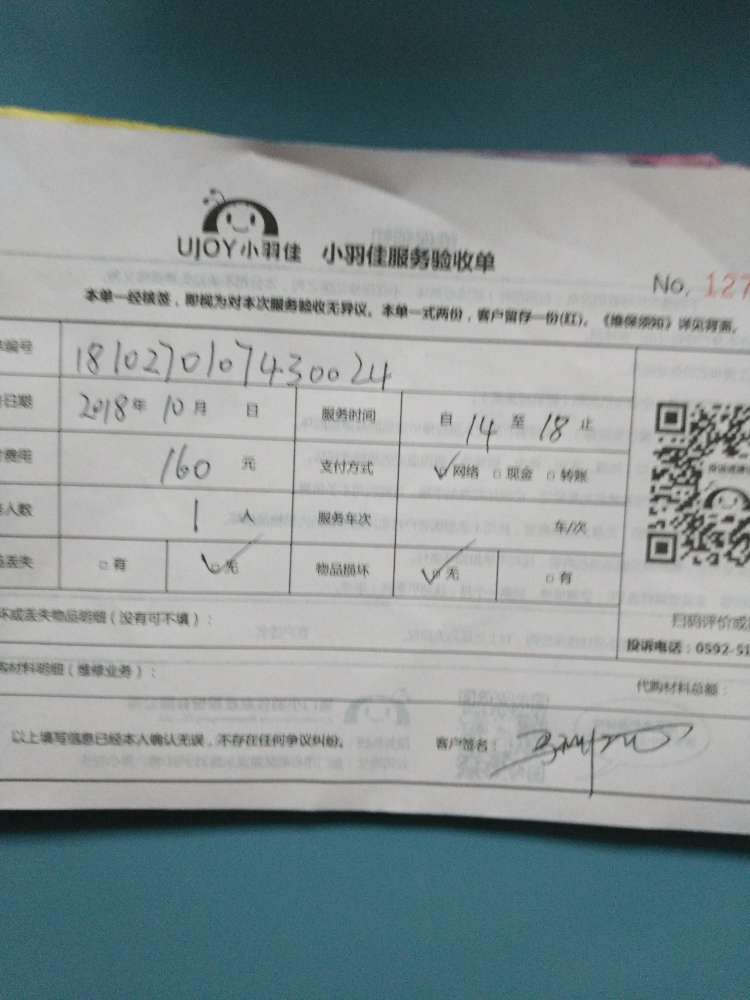 UJOY小羽佳 小羽佳服务验收单
No. 127
本单一经核签，即视为对本次服务验收无异议。本单一式两份，客户留存一份(红)。《维保须知》详见背面。
编号 1810270107430024
日期 2018年 10月 日 服务时间 自 14 至 18 止
费用 160 元 支付方式 ☑网络 □现金 □转账
人数 1 人 服务车次 车/次
丢失 □有 ☑无 物品损坏 ☑无 □有
坏或丢失物品明细（没有可不填）：
扫码评价或
投诉电话：0592-51
材料明细（维修业务）： 代购材料总额：
以上填写信息已经本人确认无误，不存在任何争议纠纷。 客户签名：